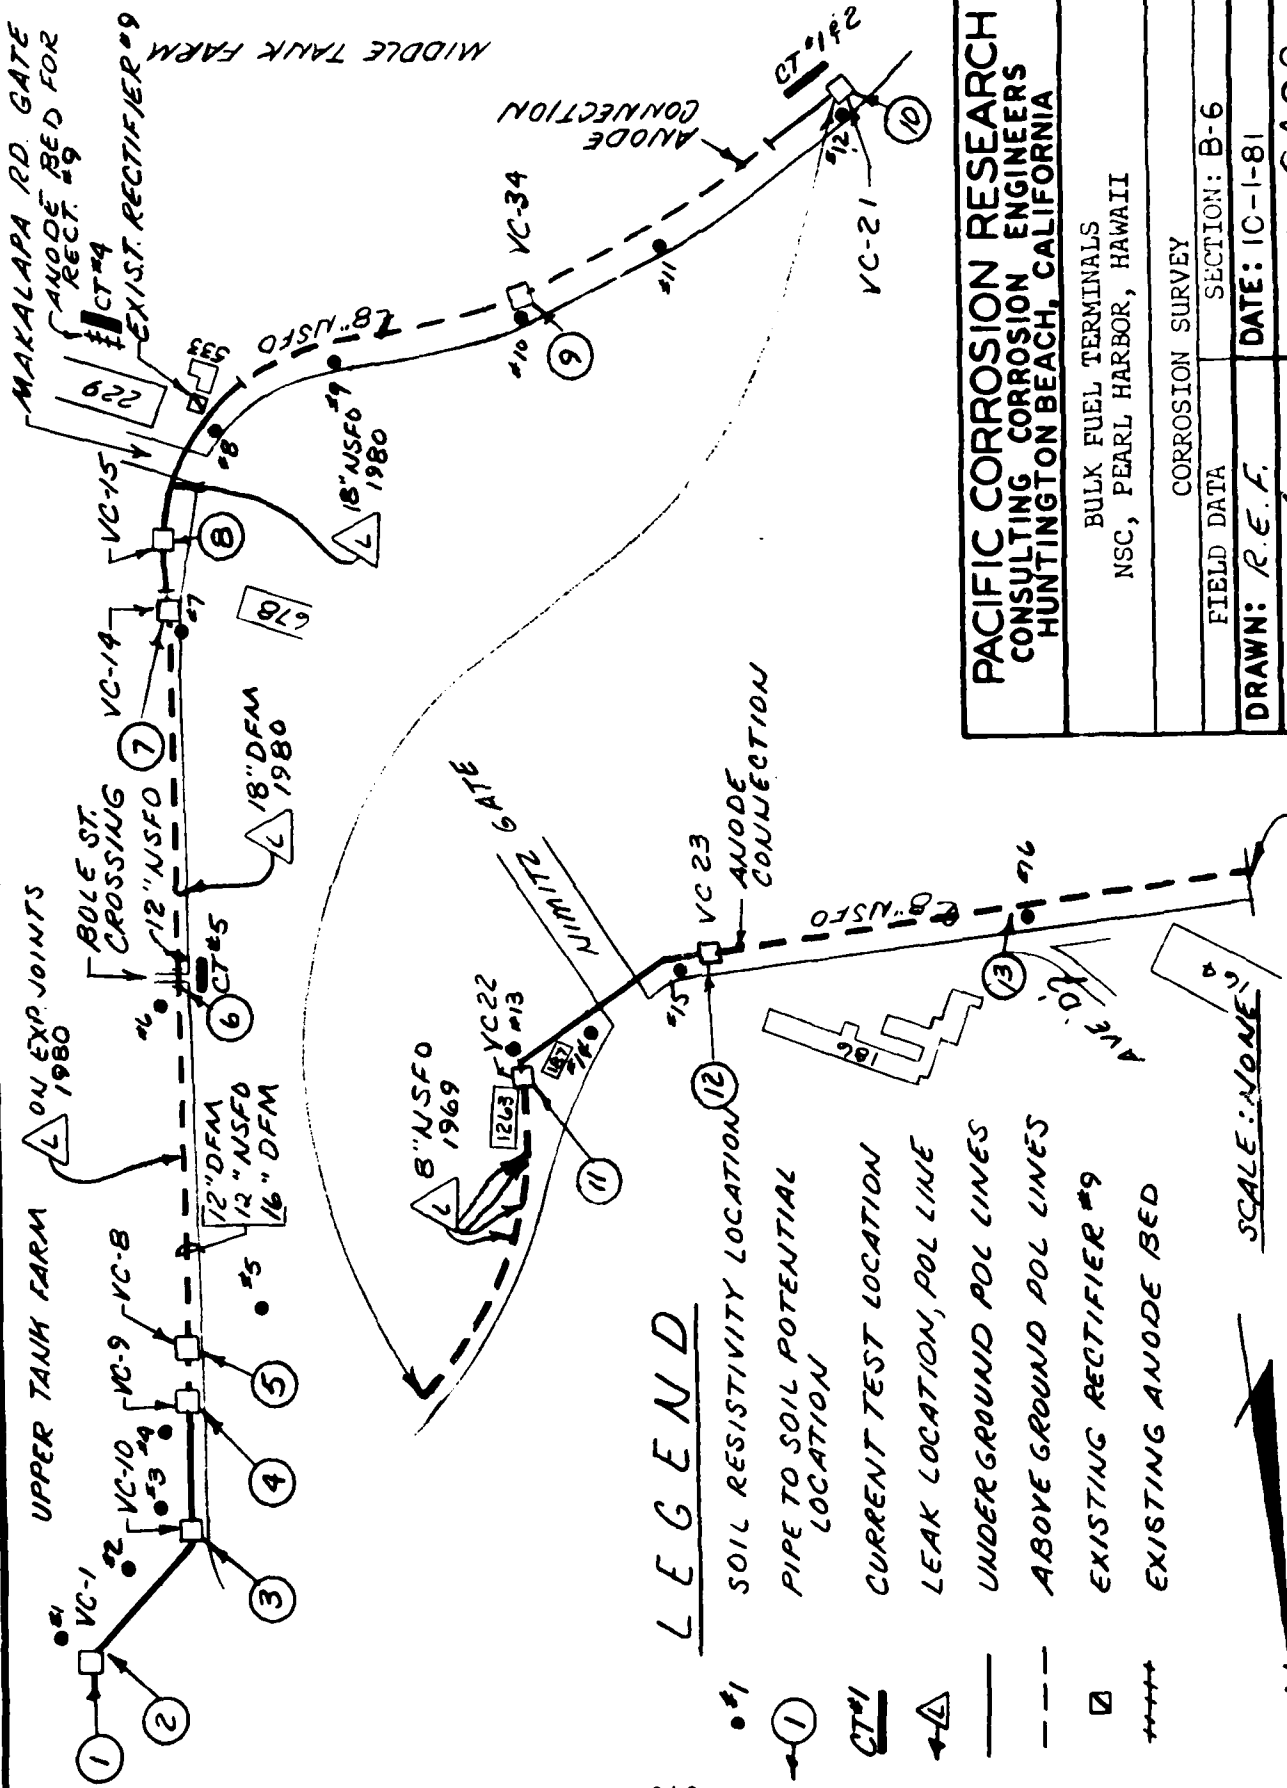 UPPER TANK FARM
ON EXP. JOINTS
1980
L
BOLE ST.
CROSSING
12" NSFO
MAKALAPA RD. GATE
ANODE BED FOR
RECT. #9
CT #4
EXIST. RECTIFIER #9
MIDDLE TANK FARM
#1
VC-1
#2
VC-10
#3
#4
VC-9
VC-8
#5
12" DFM
12" NSFO
16" DFM
#6
CT #5
18" DFM
1980
L
VC-14
#7
VC-15
678
229
533
#8
18" NSFO
1980
L
#9
8" NSFO
#10
VC-34
#11
ANODE
CONNECTION
CT #1 & 2
#12
VC-21
1
2
3
4
5
6
7
8
9
10
8" NSFO
1969
L
1263
VC22
#13
187
#14
11
NIMITZ GATE
#15
VC 23
12
ANODE
CONNECTION
8" NSFO
186
13
#16
AVE 'D'
164
LEGEND
#1 SOIL RESISTIVITY LOCATION
1 PIPE TO SOIL POTENTIAL
LOCATION
CT #1 CURRENT TEST LOCATION
L LEAK LOCATION, POL LINE
UNDERGROUND POL LINES
ABOVE GROUND POL LINES
EXISTING RECTIFIER #9
EXISTING ANODE BED
SCALE: NONE
PACIFIC CORROSION RESEARCH
CONSULTING CORROSION ENGINEERS
HUNTINGTON BEACH, CALIFORNIA
BULK FUEL TERMINALS
NSC, PEARL HARBOR, HAWAII
CORROSION SURVEY
FIELD DATA
SECTION: B-6
DRAWN: R.E.F.
DATE: 10-1-81